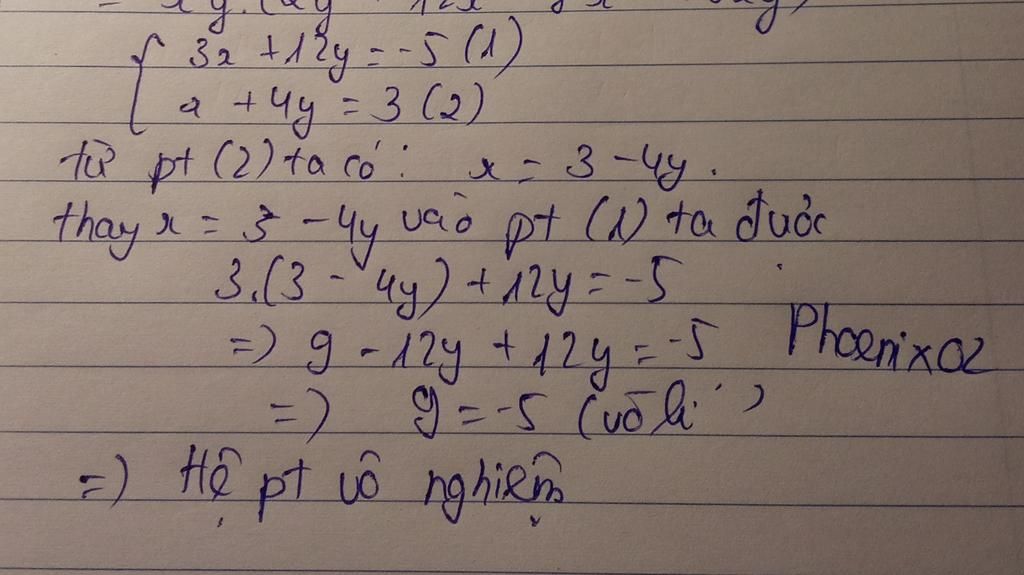 { 3x + 12y = -5 (1)
x + 4y = 3 (2)
từ pt (2) ta có: x = 3 - 4y.
thay x = 3 - 4y vào pt (1) ta được
3.(3 - 4y) + 12y = -5
=) 9 - 12y + 12y = -5
Phoenix02
=) 9 = -5 (vô lí)
=) Hệ pt vô nghiệm